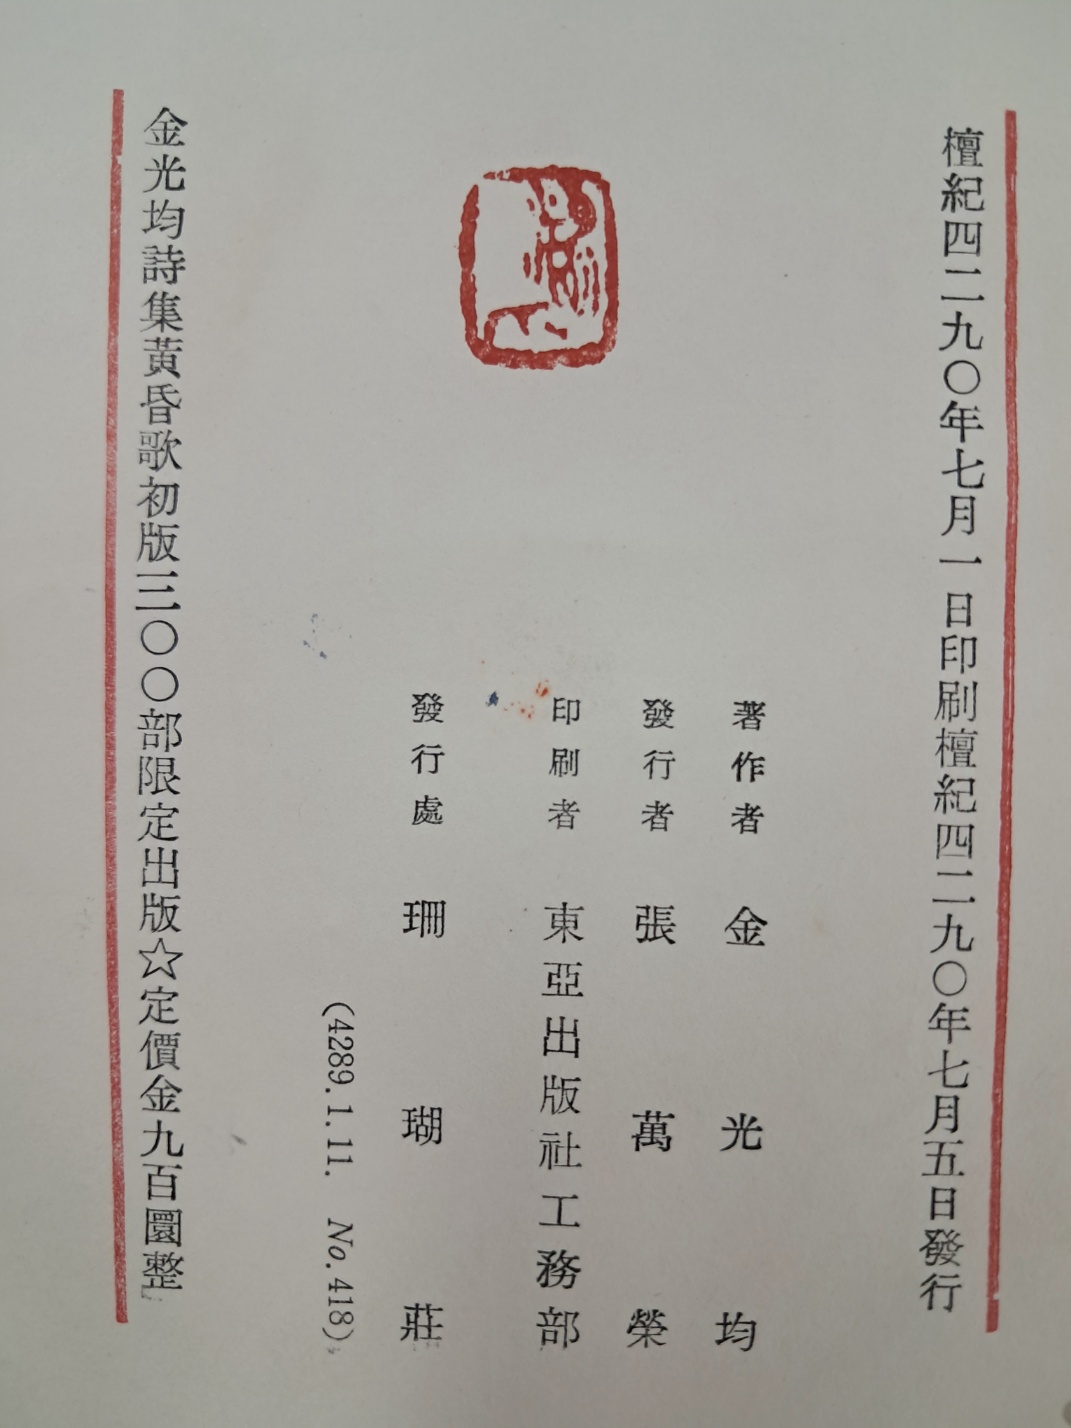 檀紀四二九〇年七月一日印刷檀紀四二九〇年七月五日發行
著作者 金光均
發行者 張萬榮
印刷者 東亞出版社工務部
發行處 珊瑚莊
(4289.1.11. No.418)
金光均詩集黃昏歌初版三〇〇部限定出版☆定價金九百圜整